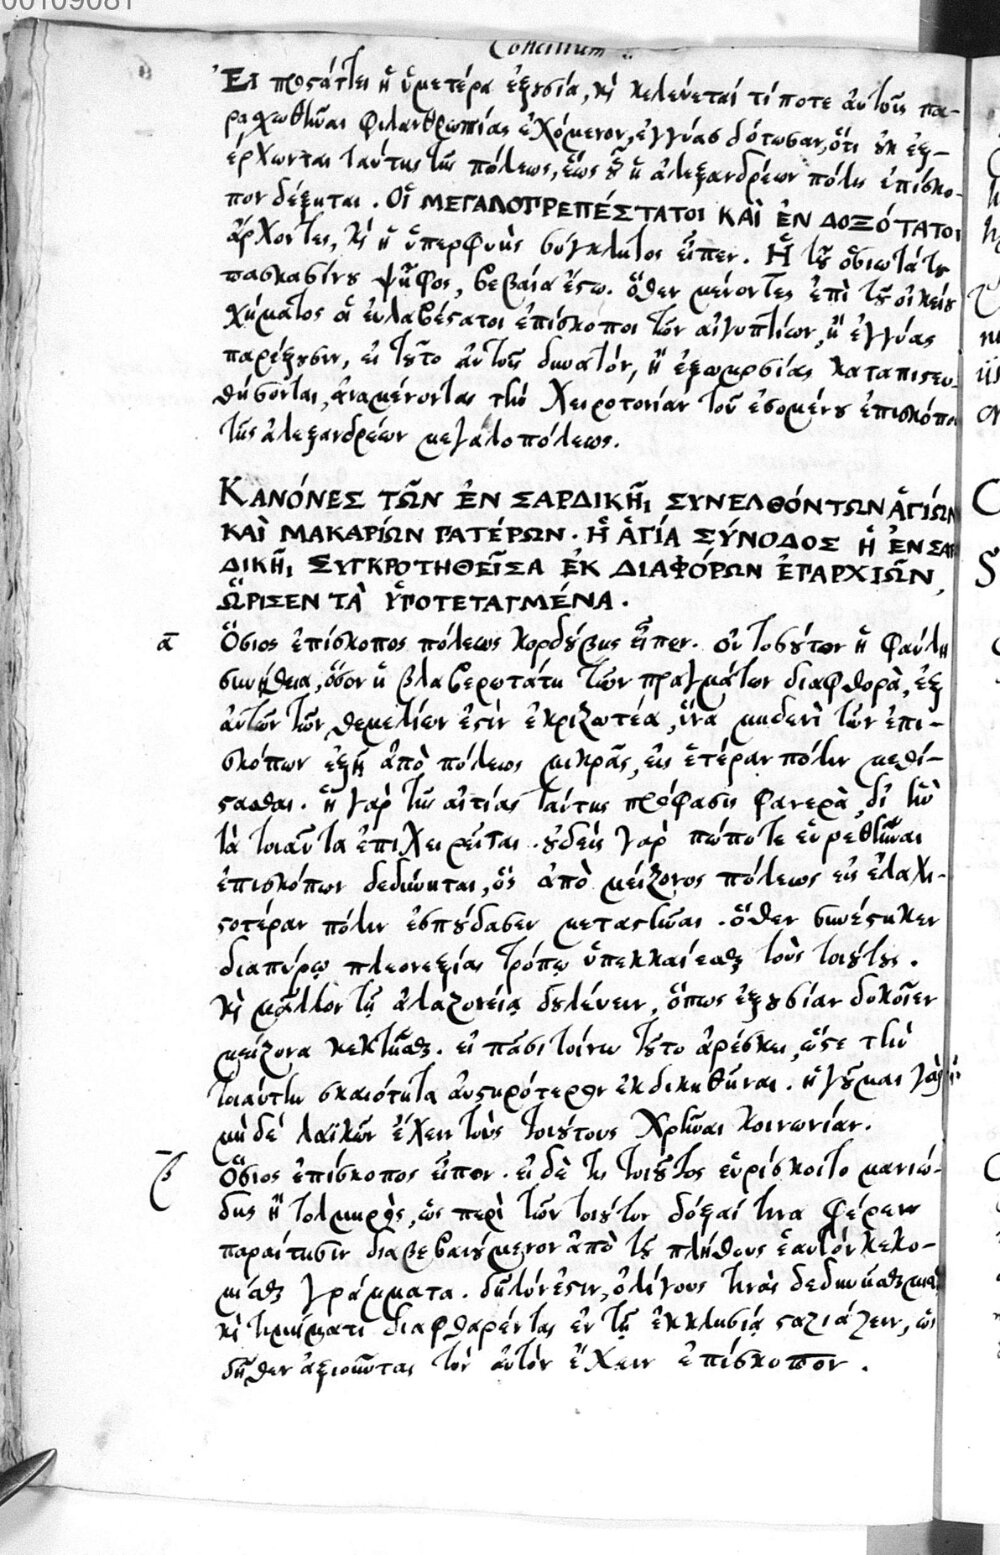 00109081
Concilium
Ἐι προςάττει ἡ ὑμετέρα ἐξουσία, καὶ κελεύεταί τί ποτε ἀυτοῖς πα-
ραχωθῆναι φιλανθρωπίας ἐχόμενον, ἐγγύας δότωσαν, ὅτι ὀυκ ἐξ-
έρχωνται ταύτης τῆς πόλεως, ἕως οὗ ἡ ἀλεξανδρέων πόλις ἐπίσκο-
πον δέξηται. Οἱ ΜΕΓΑΛΟΠΡΕΠΈΣΤΑΤΟΙ ΚΑῚ ἘΝΔΟΞΌΤΑΤΟΙ
ἄρχοντες, καὶ ἡ ὑπερφυὴς σύγκλητος εἶπεν. Ἡ τοῦ ὁσιωτάτου
πασκασίνου ψῆφος, βεβαία ἔστω. ὅθεν μένοντες ἐπὶ τοῦ οἰκείου
χήματος οἱ ἐυλαβέστατοι ἐπίσκοποι τῶν αἰγυπτίων, ἢ ἐγγύας
παρέξουσιν, ει τοῦτο ἀυτοῖς δυνατόν, ἢ ἐξωμοσίας καταπιστευ-
θήσονται, ἀναμένοντας τὴν χειροτονίαν τοῦ ἐσομένου ἐπισκόπου
τῆς ἀλεξανδρέων μεγαλοπόλεως.
ΚΑΝΌΝΕΣ ΤΩ͂Ν ἘΝ ΣΑΡΔΙΚΗ͂Ι ΣΥΝΕΛΘΌΝΤΩΝ ἉΓΊΩΝ
ΚΑῚ ΜΑΚΑΡΊΩΝ ΠΑΤΈΡΩΝ. Ἡ ἉΓΊΑ ΣΎΝΟΔΟΣ Ἡ ἘΝ ΣΑΡ
ΔΙΚΗ͂Ι ΣΥΓΚΡΟΤΗΘΕΙ͂ΣΑ ἘΚ ΔΙΑΦΌΡΩΝ ἘΠΑΡΧΙΩ͂Ν,
ὭΡΙΣΕΝ ΤᾺ ὙΠΟΤΕΤΑΓΜΈΝΑ.
α Ὅσιος ἐπίσκοπος πόλεως κορδούβης εἶπεν. οὐ τοσοῦτον ἡ φαύλη
συνήθεια, ὅσον ἡ βλαβερωτάτη τῶν πραγμάτων διαφθορὰ, ἐξ
ἀυτῶν τῶν θεμελίων ἐστὶν ἐκριζωτέα, ἵνα μηδενὶ τῶν ἐπι-
σκόπων ἐξῇ ἀπὸ πόλεως μικρᾶς, εἰς ἑτέραν πόλιν μεθί-
στασθαι. ἡ γὰρ τῆς αἰτίας ταύτης πρόφασις φανερὰ, δι' ἣν
τὰ τοιαῦτα ἐπιχειρεῖται. ὀυδεὶς γὰρ πώποτε εὑρεθῆναι
ἐπισκόπων δεδύνηται, ὃς ἀπὸ μείζονος πόλεως εἰς ἐλαχι-
στοτέραν πόλιν ἐσπούδασεν μεταστῆναι. ὅθεν συνέστηκεν
διαπύρῳ πλεονεξίας τρόπῳ ὑπεκκαίεσθαι τοὺς τοιούτους.
καὶ μᾶλλον τῇ ἀλαζονείᾳ δουλέυειν, ὅπως ἐξουσίαν δοκοῖεν
μείζονα κεκτῆσθαι. εἰ πᾶσι τοίνυν τοῦτο ἀρέσκει, ὥστε τὴν
τοιαύτην σκαιότητα ἀυστηρότερον ἐκδικηθῆναι. ἡγοῦμαι γὰρ
μὴ δὲ λαϊκῶν ἔχειν τοὺς τοιούτους χρῆναι κοινωνίαν.
β Ὅσιος ἐπίσκοπος εἶπεν. ει δὲ τις τοιοῦτος εὑρίσκοιτο μανιώ-
δης ἢ τολμηρὸς, ὡς περὶ τῶν τοιούτων δόξαί τινα φέρειν
παραίτησιν διαβεβαιούμενον ἀπὸ τοῦ πλήθους ἑαυτὸν κεκο-
μίσθαι γράμματα. δῆλόν ἐστιν, ὀλίγους τινὰς δεδυνῆσθαι μισθῷ
καὶ τιμήματι διαφθαρέντας ἐν τῇ ἐκκλησίᾳ στασιάζειν, ὡς
δῆθεν ἀξιοῦντας τὸν αὐτὸν ἔχειν ἐπίσκοπον.